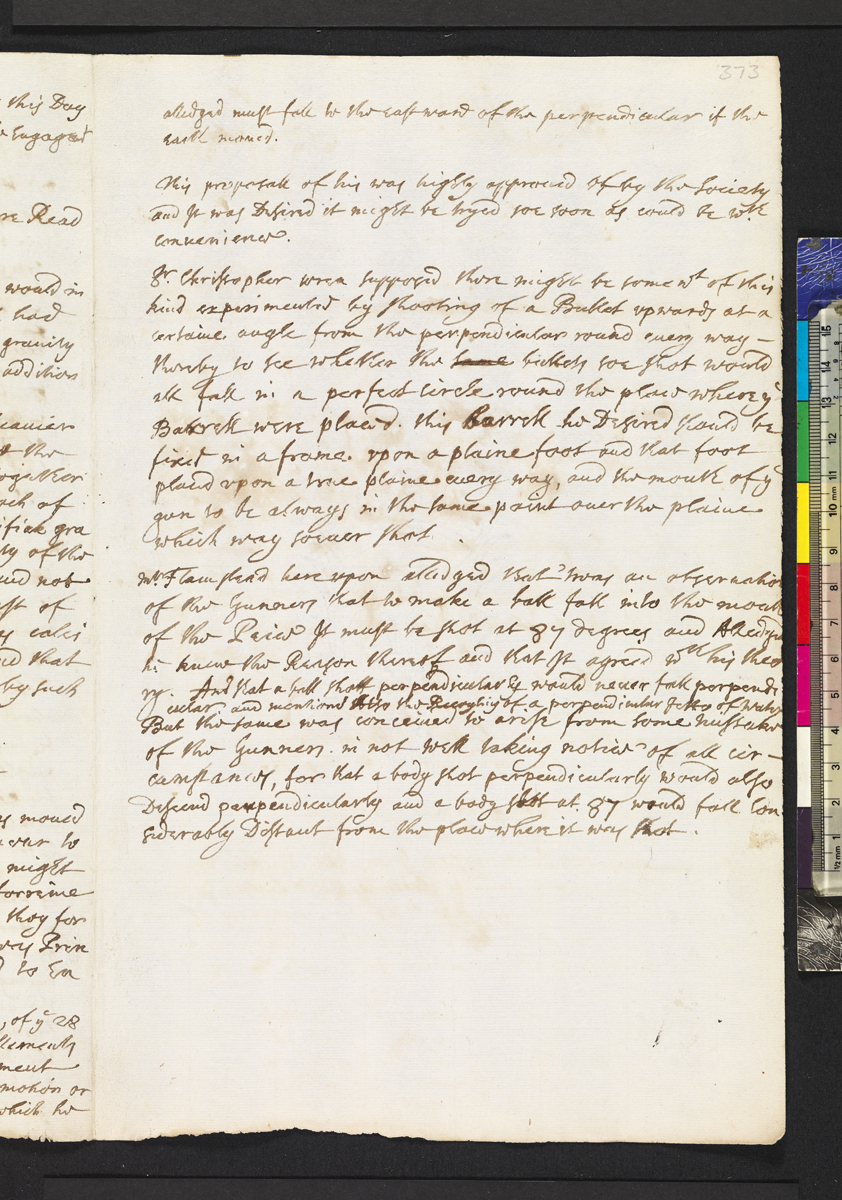 373
this Day
Engaged
Read
would in
had
gravity
addition
the
together
of
gra
ty of the
not
of
that
by such
moued
to
might
they for
to En
, of yͤ 28
ment
motion or
which he
alledged must fall to the eastward of the perpendicular if the
earth moued.
This proposall of his was highly approued of by the Society
and It was Desired it might be tryed soe soon as could be wth
convenience.
Sr. Christopher wren supposed there might be some wt of this
kind experimented by shooting of a Bullet upwards at a
certaine angle from the perpendicular round euery way -
thereby to see whether the same bullets soe shot would
all fall in a perfect circle round the place where ye
Barrell were placed. this barrell he Desired should be
fixed in a frame vpon a plaine foot and that foot
placed vpon a true plaine euery way, and the mouth of ye
gun to be always in the same point ouer the plaine
which way soeuer shot.
mr Flamstead here vpon alledged that 'twas an obseruation
of the Gunners that to make a ball fall into the mouth
of the Peice It must be shot at 87 degrees and Alledged
he knew the Reason thereof and that It agreed wth his theo
ry. And that a ball shott perpendicularly would neuer fall perpendi
cular. and mentiond Also the Recoyling of a perpendicular Jetto of water
But the same was conceiued to arise from some mistake
of the Gunners in not well taking notice of all cir -
cumstances, for that a body shot perpendicularly would also
Descend perpendicularly and a body shott at 87 would fall Con
siderably Distant from the place where it was shot.